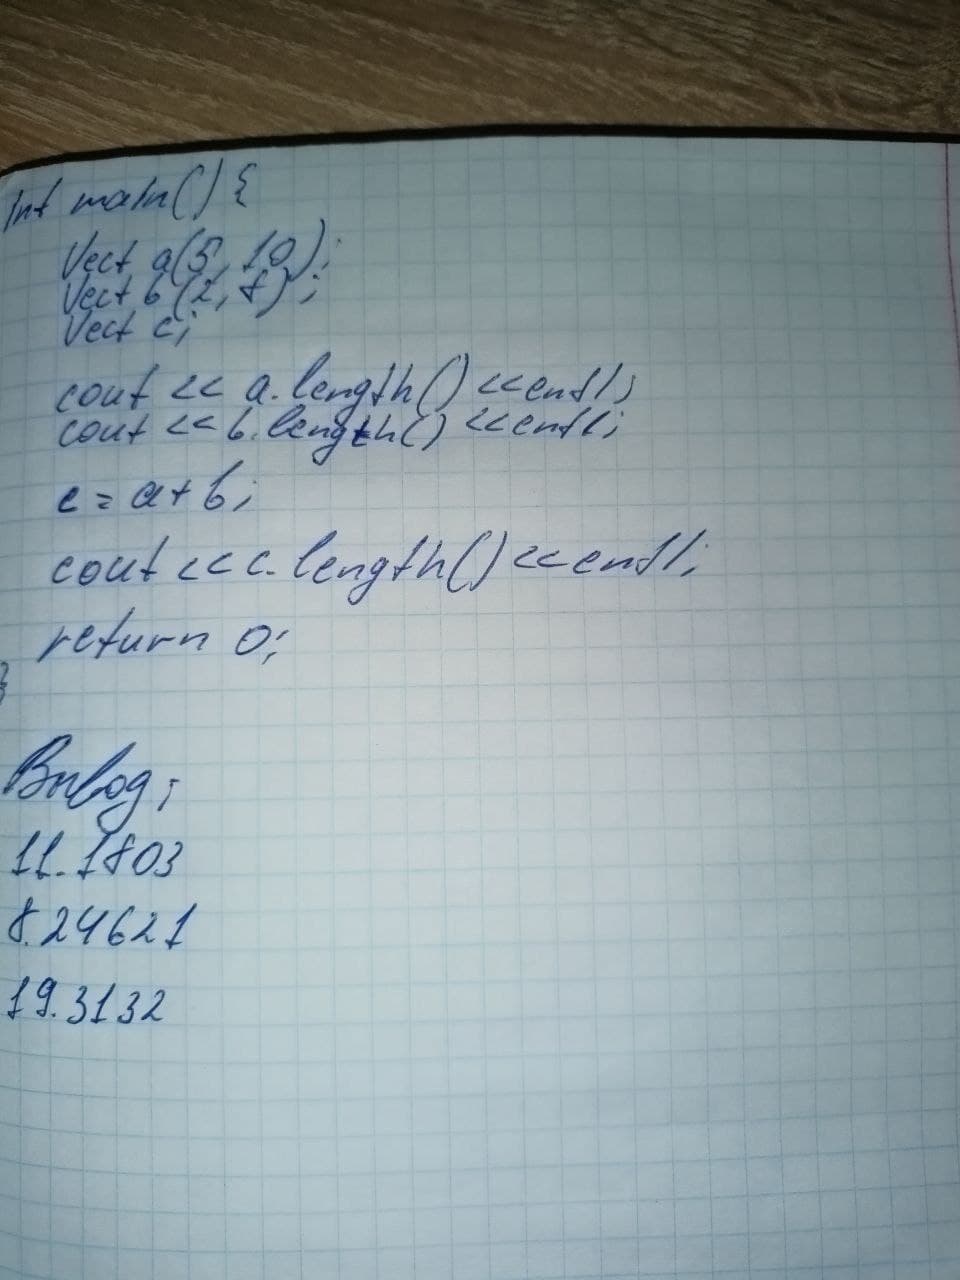 int main() {
Vect a(5, 10);
Vect b(2, 8);
Vect c;
cout << a.length() <<endl;
cout << b.length() <<endl;
c = a + b;
cout << c.length() <<endl;
return 0;
}
Вывод:
11.1803
8.24621
19.3132